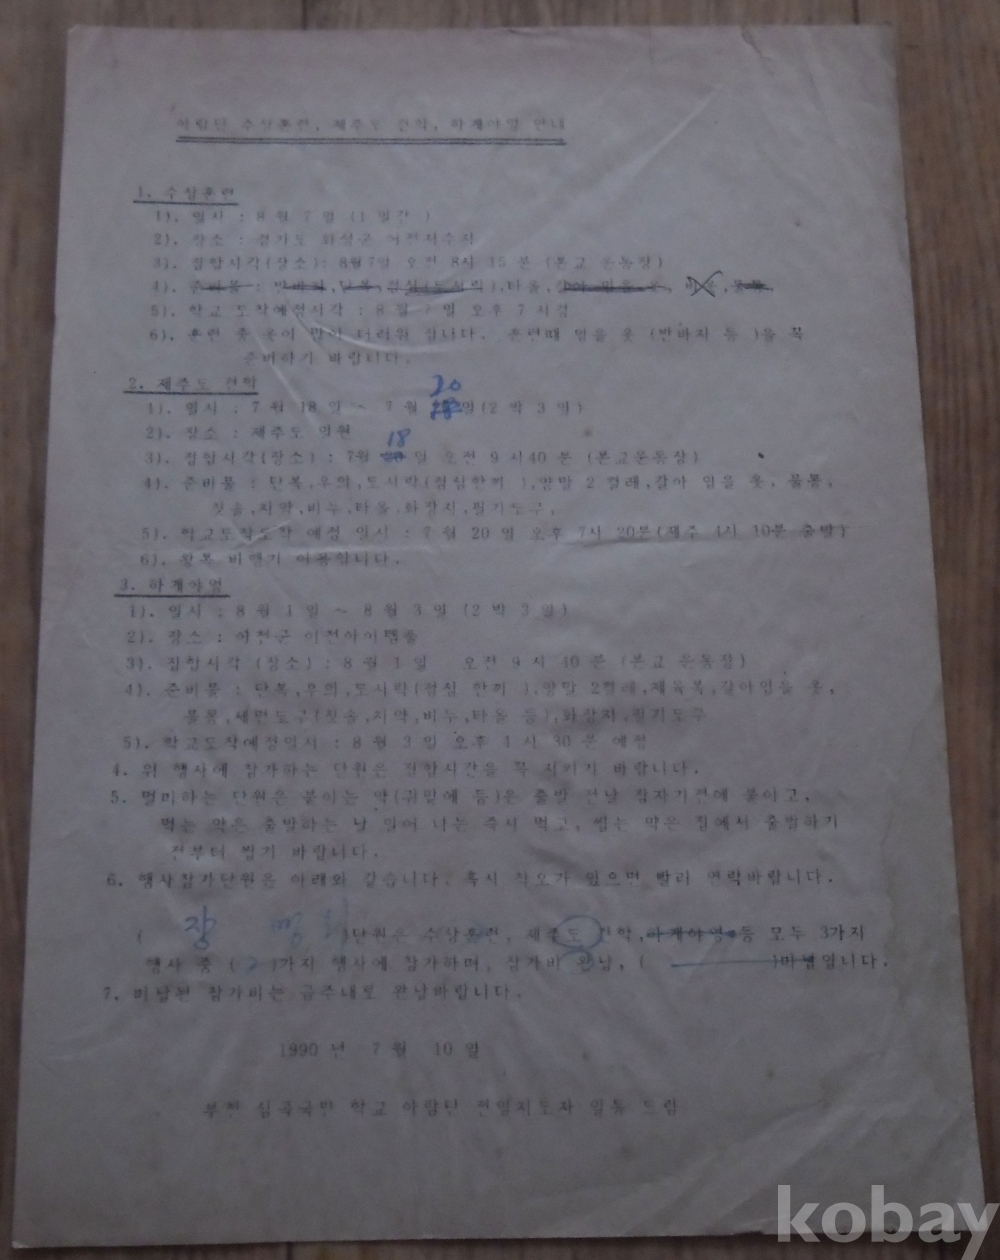 아람단 수상훈련, 제주도 견학, 하계야영 안내
1. 수상훈련
1). 일시 : 8 월 7 일 (1 일간 )
2). 장소 : 경기도 화성군 어천저수지
3). 집합시각(장소): 8월7일 오전 8시 15 분 (본교 운동장)
4). 준비물 : 반바지,단복,점심(도시락),타올,갈아 입을 옷, 물통,
5). 학교 도착예정시각 : 8 월 7 일 오후 7 시경
6). 훈련 중 옷이 많이 더러워 집니다. 훈련때 입을 옷 (반바지 등 )을 꼭
준비하기 바랍니다.
2. 제주도 견학
20
1). 일시 : 7 월 18 일 ~ 7 월 일(2 박 3 일)
2). 장소 : 제주도 일원
18
3). 집합시각(장소) : 7월 20 일 오전 9 시40 분 (본교운동장)
4). 준비물 : 단복,우의,도시락(점심한끼 ),양말 2 켤레,갈아 입을 옷, 물통,
칫솔,치약,비누,타올,화장지,필기도구,
5). 학교도착도착 예정 일시 : 7 월 20 일 오후 7시 20분(제주 4시 10분 출발)
6). 왕복 비행기 이용합니다.
3. 하계야영
1). 일시 : 8 월 1 일 ~ 8 월 3 일 (2 박 3 일)
2). 장소 : 이천군
3). 집합시각 (장소) : 8 월 1 일 오전 9 시 40 분 (본교 운동장)
4). 준비물 : 단복,우의,도시락(점심 한끼 ),양말 2켤레,체육복,갈아입을 옷,
물통,세면도구(칫솔,치약,비누,타올 등),화장지,필기도구
5). 학교도착예정일시 : 8 월 3 일 오후 4 시 30 분 예정
4. 위 행사에 참가하는 단원은 집합시간을 꼭 지키기 바랍니다.
5. 멀미하는 단원은 붙이는 약(귀밑에 등)은 출발 전날 잠자기전에 붙이고,
먹는 약은 출발하는 날 일어 나는 즉시 먹고, 씹는 약은 집에서 출발하기
전부터 씹기 바랍니다.
6. 행사참가단원은 아래와 같습니다. 혹시 착오가 있으면 빨리 연락바랍니다.
( 장 )단원은 수상훈련, 제주도 견학,하계야영 등 모두 3가지
행사 중 ( 2 )가지 행사에 참가하며, 참가비 완납, ( )미납입니다.
7. 미납된 참가비는 금주내로 완납바랍니다.
1990 년 7 월 10 일
부천 심곡국민 학교 아람단 전일지도자 일동 드림
kobay